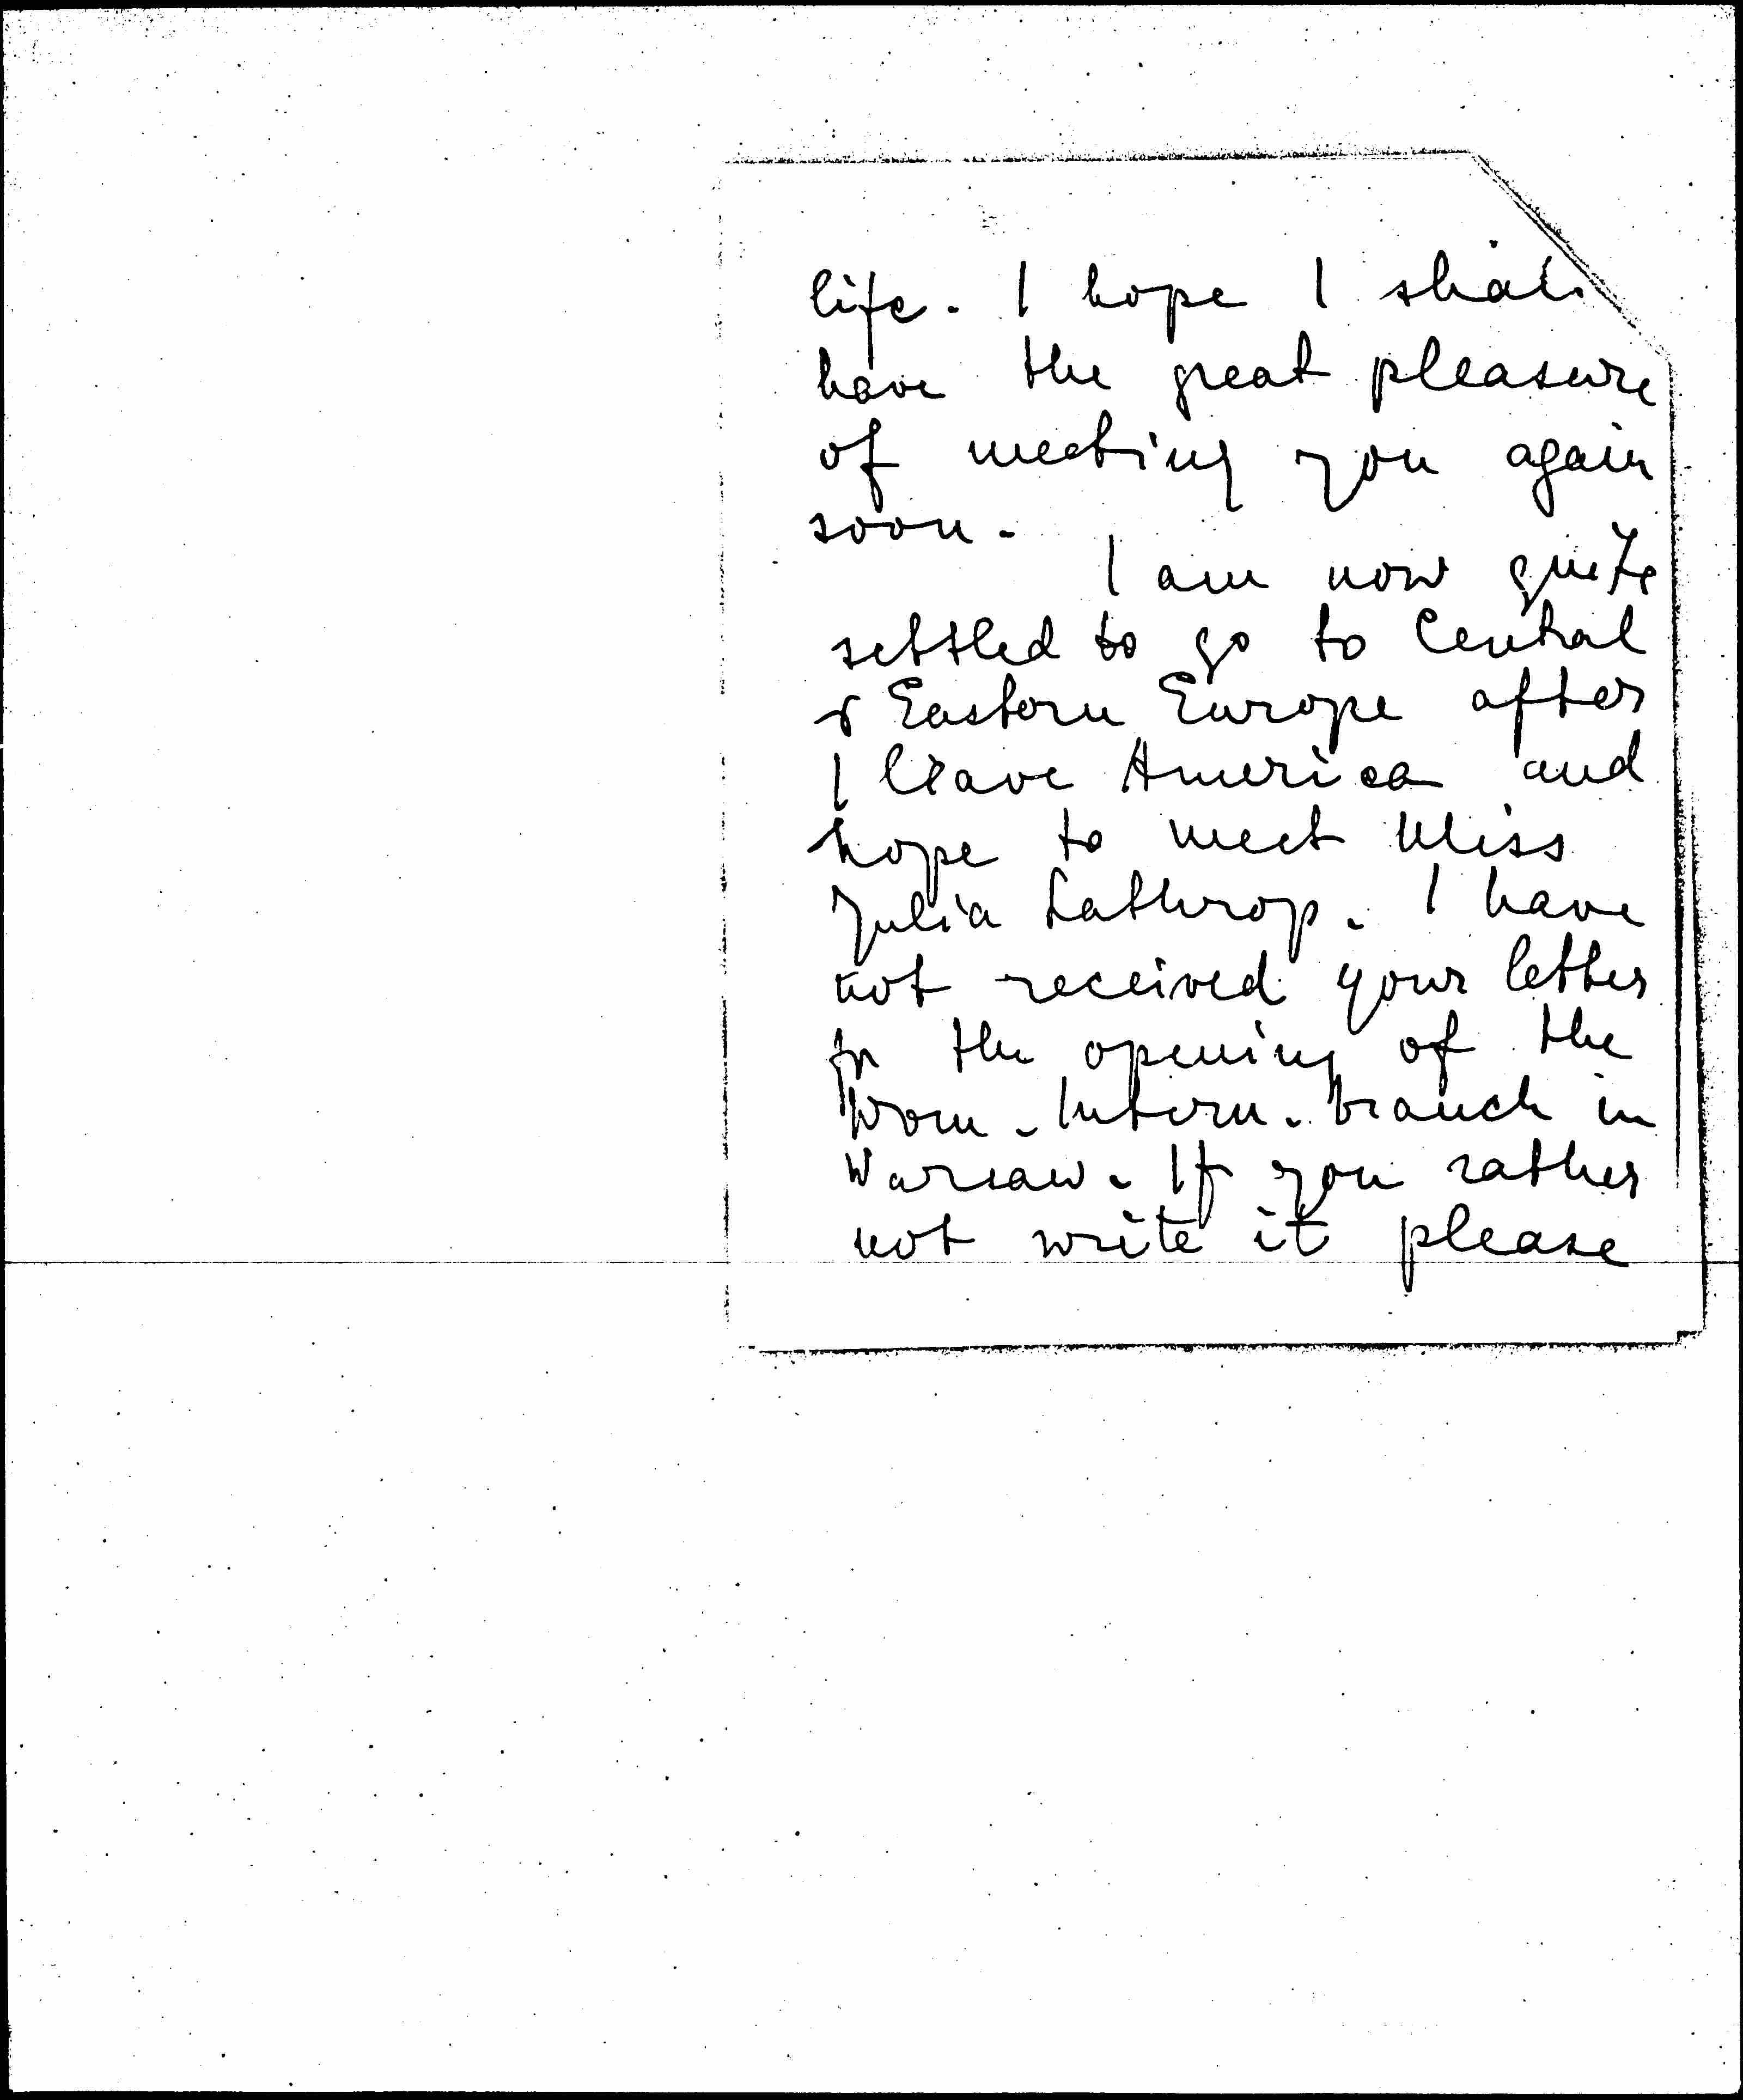 life. I hope I shall
have the great pleasure
of meeting you again
soon.
I am now quite
settled to go to Central
& Eastern Europe after
I leave America and
hope to meet Miss
Julia Lathrop. I have
not received your letter
for the opening of the
Wom. Intern. branch in
Warsaw. If you rather
not write it please